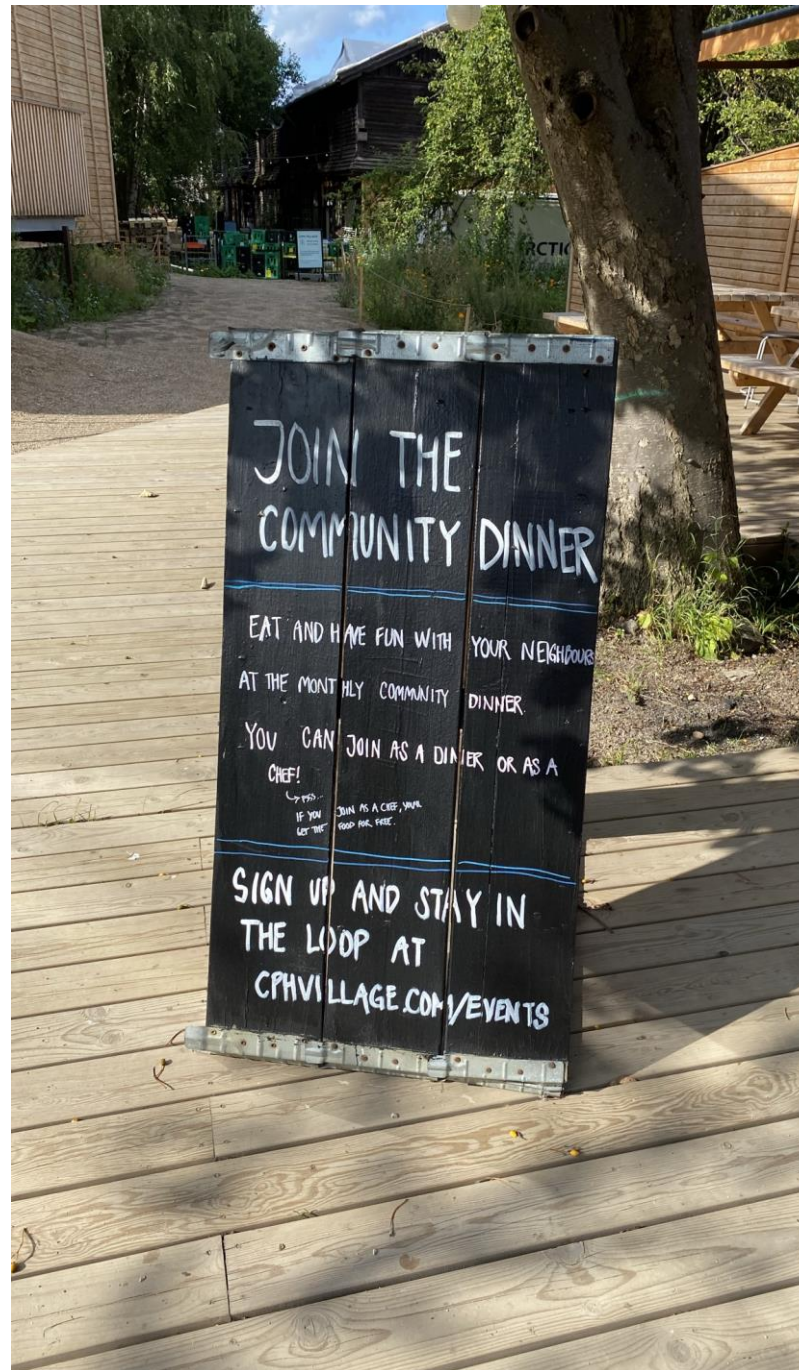 RCTIC
JOIN THE
COMMUNITY DINNER
EAT AND HAVE FUN WITH YOUR NEIGHBOURS
AT THE MONTHLY COMMUNITY DINNER.
YOU CAN JOIN AS A DINER OR AS A
CHEF!
PSS...
IF YOU JOIN AS A CHEF, YOU'LL
GET THE FOOD FOR FREE.
SIGN UP AND STAY IN
THE LOOP AT
CPHVILLAGE.COM/EVENTS